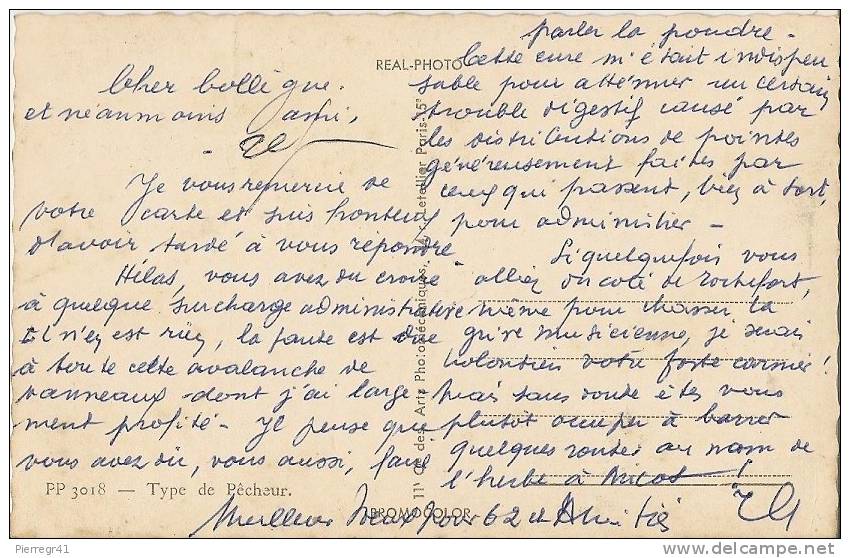 REAL-PHOTO
Cher collègue.
et néanmoins ami,
Je vous remercie de
votre carte et suis honteux
d'avoir tardé à vous répondre
Hélas, vous avez du croire
à quelque surcharge administrative
Il n'en est rien, la faute est due
à toute cette avalanche de
vanneaux dont j'ai large
ment profité - Je pense que
vous avez dû, vous aussi, faire
parler la poudre -
Cette cure m'était indispen
sable pour atténuer un certain
trouble digestif causé par
les distributions de pointes
généreusement faites par
ceux qui passent, bien à tort,
pour administrer -
Si quelquefois vous
alliez du coté de Rochefort,
même pour chasser la
grive musicienne, je serais
volontiers votre
Mais sans doute êtes vous
plutot occuper à barrer
quelques routes au nom de
l'herbe à Nicot !
Meilleurs Voeux pour 62 et Amitiés
PP 3018 — Type de Pêcheur.
BROMOCOLOR
des Arts Photomécaniques, Letellier Paris-15e
Pierregr41
delcampe.net